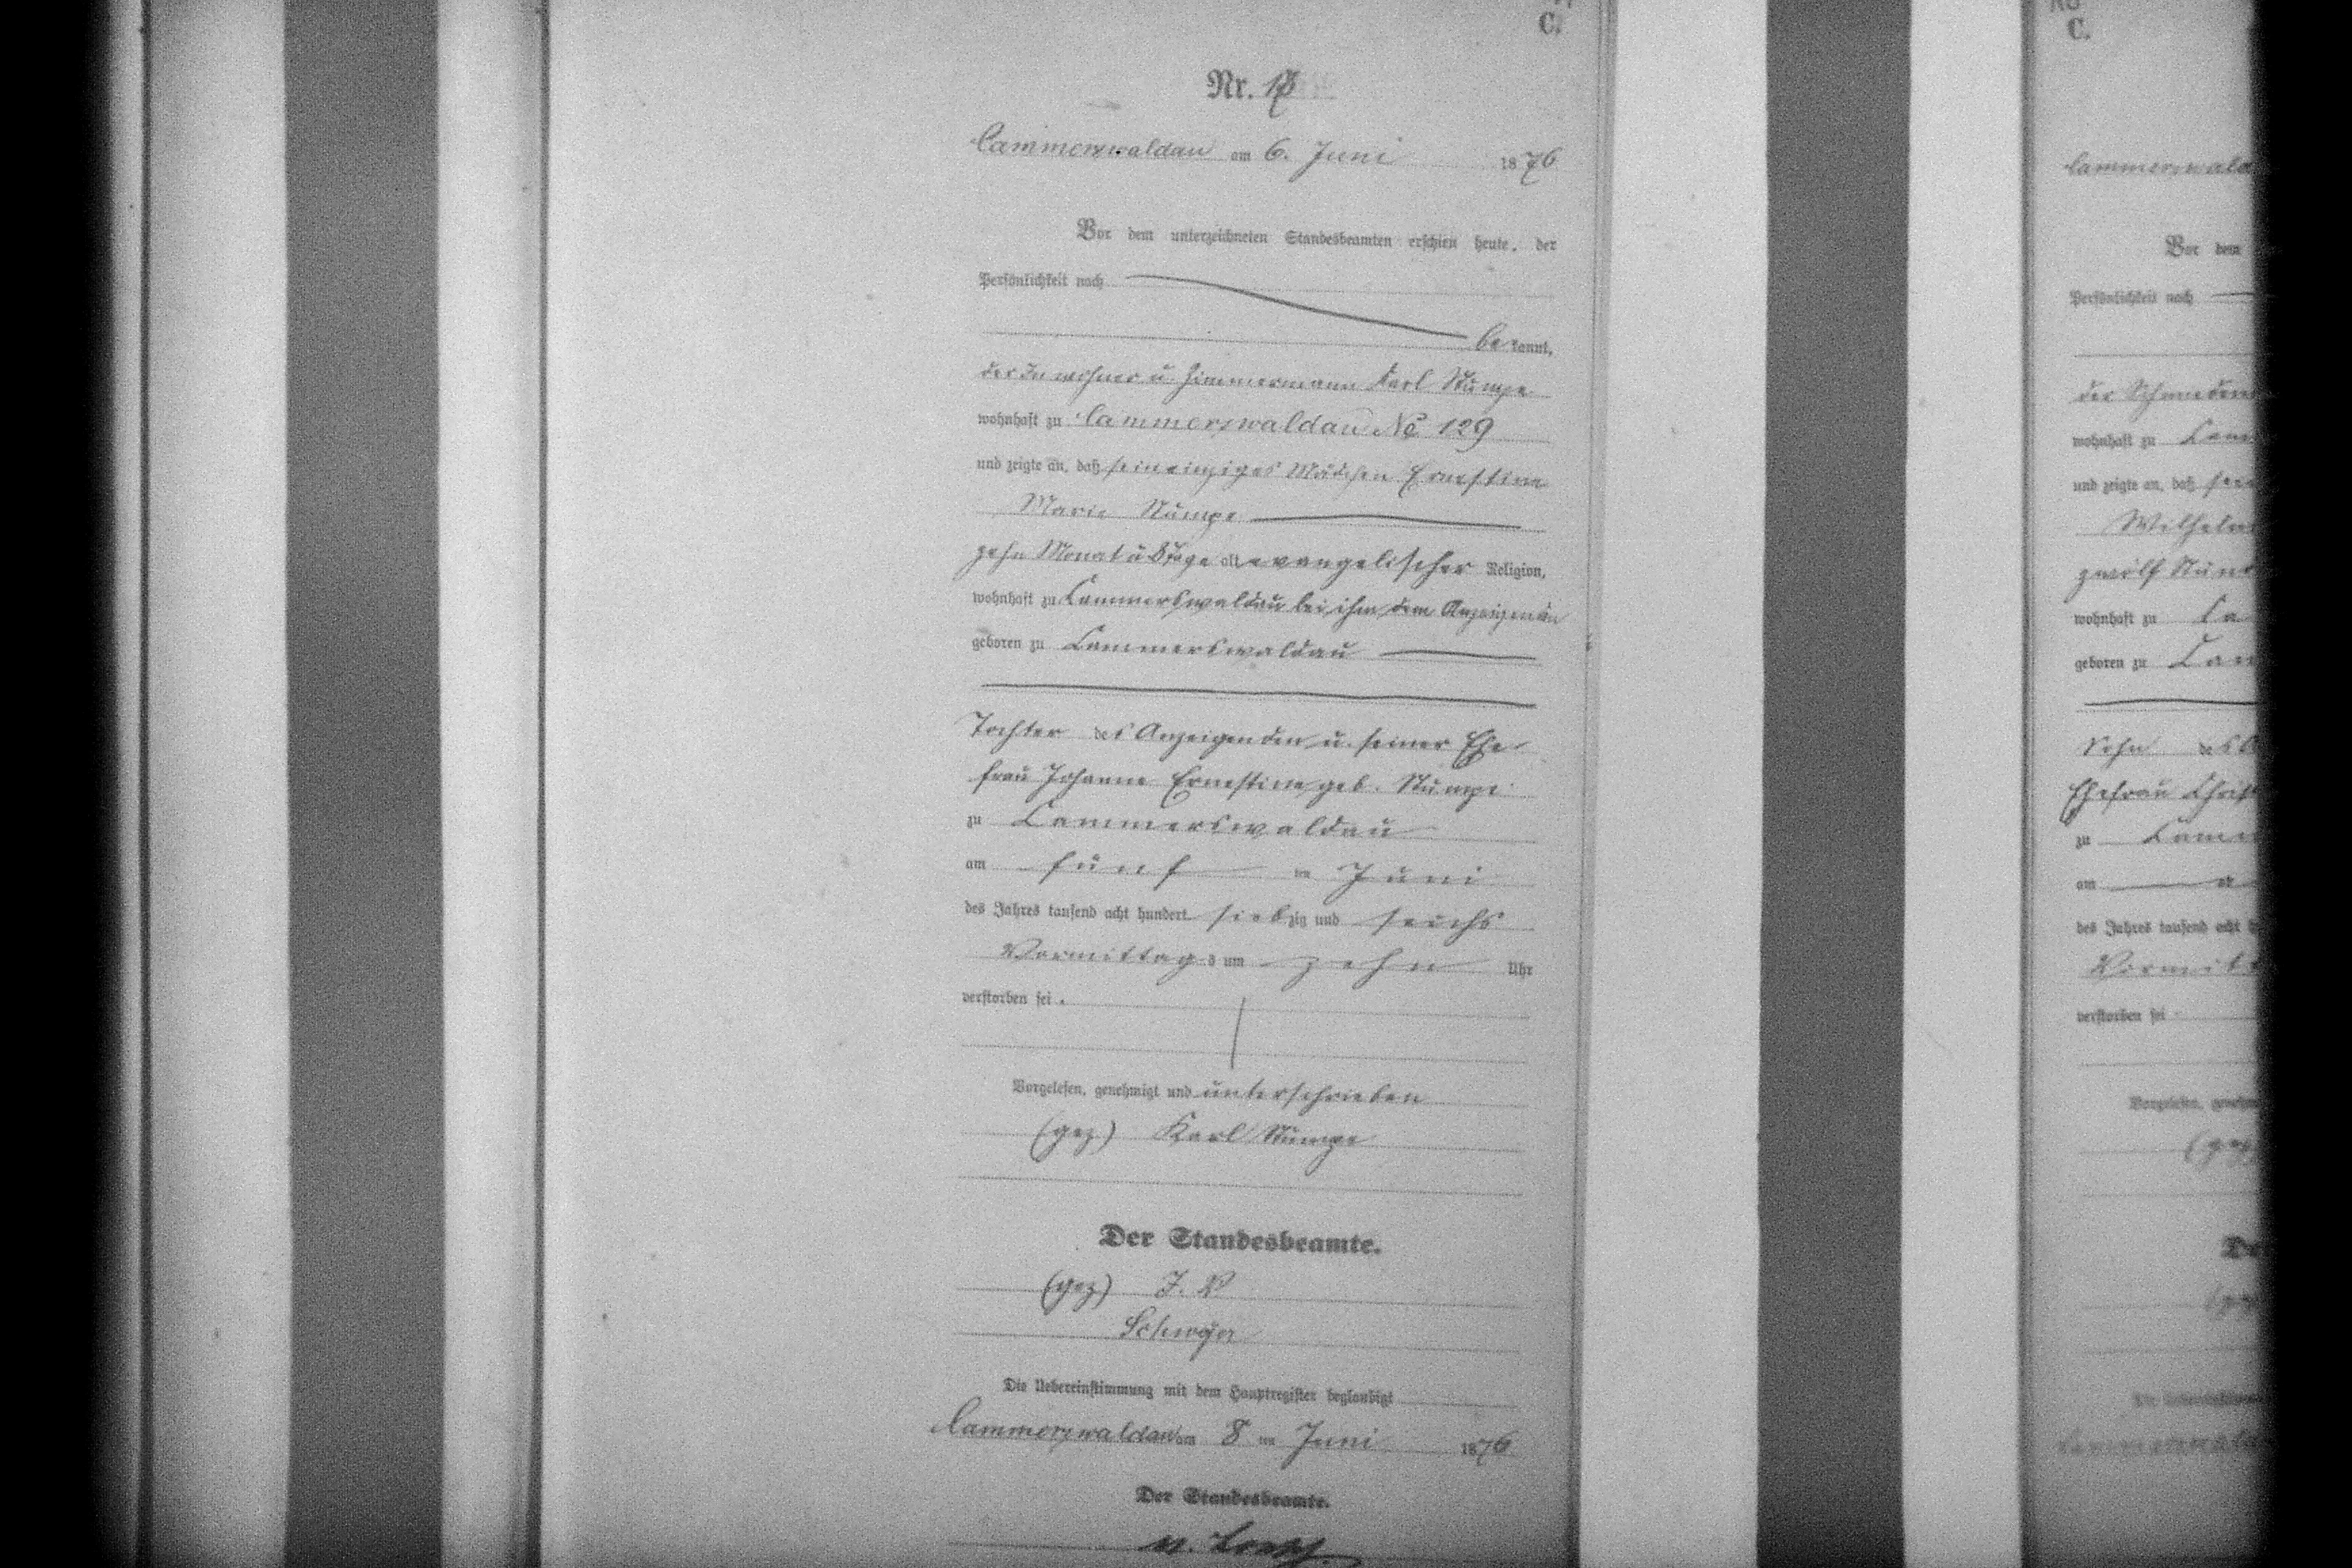 C.
Nr. 17
Cammerswaldau am 6. Juni 1876
Vor dem unterzeichneten Standesbeamten erschien heute, der
Persönlichkeit nach
bekannt,
der Inwohner u. Zimmermann Karl Stumpe
wohnhaft zu Cammerswaldau No 129
und zeigte an, daß sein einziges Mädchen Ernestine
Marie Stumpe
zehn Monat u 8 Tage alt evangelischer Religion,
wohnhaft zu Cammerswaldau bei ihm, dem Anzeigenden
geboren zu Cammerswaldau
Tochter des Anzeigenden u. seiner Ehe-
frau Johanne Ernestine, geb. Stumpe
zu Cammerswaldau
am fünf ten Juni
des Jahres tausend acht hundert siebzig und sechs
Vormittags um zehn Uhr
verstorben sei.
Vorgelesen, genehmigt und unterschrieben
(gez) Karl Stumpe
Der Standesbeamte.
(gez) J. V
Die Uebereinstimmung mit dem Hauptregister beglaubigt
Cammerswaldau am 8 ten Juni 1876
Der Standesbeamte.
C.
Cammerswald
Vor dem
Persönlichkeit nach
der
wohnhaft zu Cam
und zeigte an, daß
Wilhelm
zwölf Stun
wohnhaft zu Ca
geboren zu Cam
Sohn des A
Ehefrau Christ
zu Camm
am
des Jahres tausend acht h
Vormit
verstorben sei
Vorgelesen, geneh
(gez